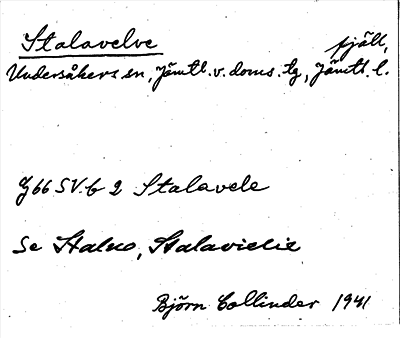 Stalavelve fjäll,
Undersåkers sn, Jämtl. v. doms. tg, Jämtl. l.
J66 SV. b 2 Stalavele
Se Staluo, Stalavielie
Björn Collinder 1941